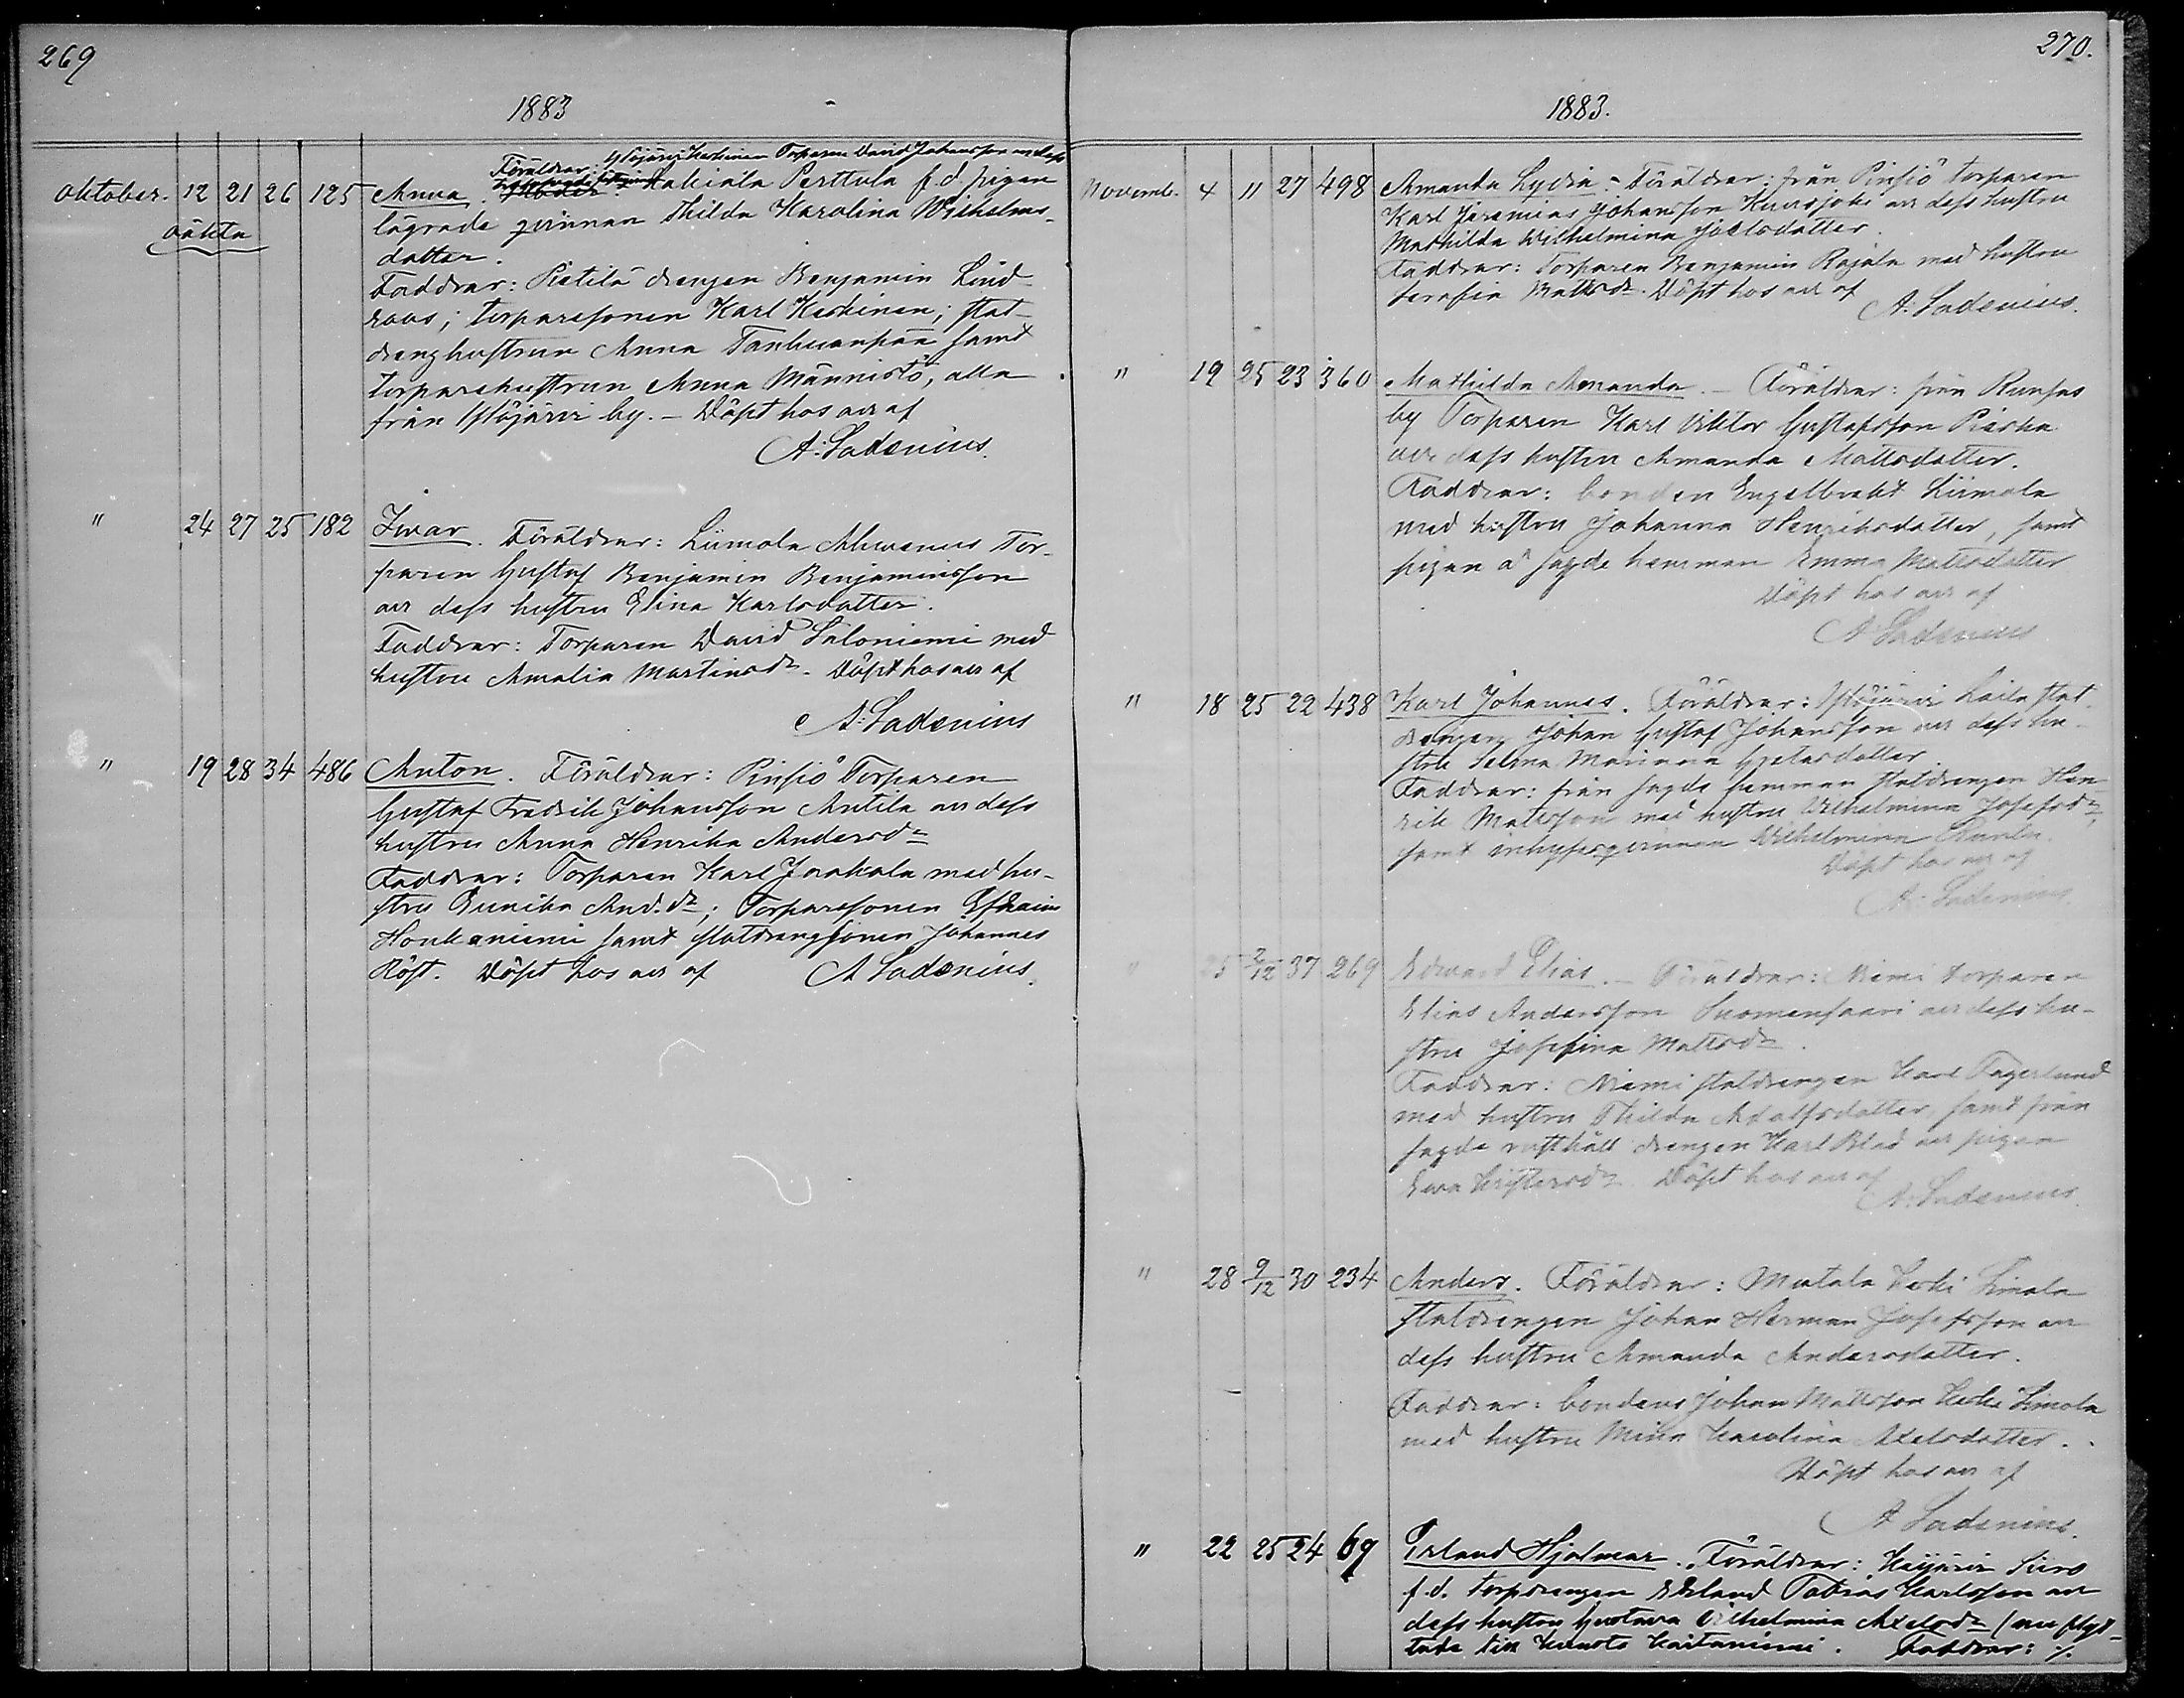 269
1883
Föräldrar: Ylöjärvi Keskinen Torparen David Johansson o dess
oktober. 12 21 26 125 Anna. Lakiala Perttula f.d. pigan
oäkta
lägrade qvinnan Thilda Karolina Wilhelms-
dotter.
Faddrar: Pietilä drengen Benjamin Lind-
roos; torparesonen Karl Keskinen; stat-
drenghustrun Anna Tanhuanpää samt
torparehustrun Anna Männistö, alla
från Ylöjärvi by. – Döpt hos oss af
A: Ladenius.
" 24 27 25 182 Ivar. Föräldrar: Liimola Tor-
paren Gustaf Benjamin Benjaminsson
o dess hustru Elina Karlsdotter.
Faddrar: Torparen David Saloniemi med
hustru Amalia Martinsdr. Döpt hos oss af
A: Ladenius
" 19 28 34 486 Anton. Föräldrar: Pinsiö Torparen
Gustaf Fredrik Johansson Antila o dess
hustru Anna Henrika Andersdr
Faddrar: Torparen Karl Jaakola med hu-
stru Eunika And.dr; Torparesonen Efraim
Honkaniemi samt statdrengsonen Johannes
Röst. Döpt hos oss af A Ladenius.
270.
1883.
Novemb. 4 11 27 498 Amanda Lydia. – Föräldrar: från Pinsiö torparen
Karl Jeremias Johansson Kuusjoki o dess hustru
Mathilda Wilhelmina Joelsdotter.
Faddrar: Torparen Benjamin Rajala med hustru
Serafia Mattsdr. Döpt hos oss af
A: Ladenius.
" 19 25 23 360 Mathilda Amanda. – Föräldrar: från Runsas
by Torparen Karl Viktor Gustafsson Pieska
o dess hustru Amanda Mattsdotter.
Faddrar: bonden Engelbrekt Liimola
med hustru Johanna Henriksdotter, samt
pigan å sagde hemman Emma Mattsdotter
Döpt hos oss af
A Ladenius
" 18 25 22 438 Karl Johannes. Föräldrar: Ylöjärvi Laila stat-
drengen Johan Gustaf Johansson o dess hu-
stru Selma Marianna Gustafsdotter.
Faddrar: från sagde hemman statdrengen Hen-
rik Mattsson med hustru Wilhelmina Josefsdr,
samt inhysesqvinnan Wilhelmina
Döpt hos oss af
A: Ladenius.
" 25 2/12 37 269 Edward Elias. – Föräldrar: Niemi torparen
Elias Andersson Suomensaari o dess hu-
stru Josefina Mattsdr.
Faddrar: Niemi statdrengen Karl Fagerlund
med hustru Thilda Adolfsdotter samt från
sagde rusthåll drengen Karl Blad o pigan
Ewa Kristersdr. Döpt hos oss af
A: Ladenius.
" 28 9/12 30 234 Anders. Föräldrar: Mutala Simola
statdrengen Johan Herman Josefsson o
dess hustru Amanda Andersdotter.
Faddrar: bonden Johan Mattsson Simola
med hustru Miina Karolina Axelsdotter.
Döpt hos oss af
A Ladenius.
" 22 25 24 69 Erland Hjalmar. Föräldrar: Keijärvi Siiro
f.d. torpdrengen Erland Tobias Karlsson o
dess hustru Gustava Wilhelmina Axelsdr (nu flyt-
tade till Kaitaniemi. Faddrar: ./.